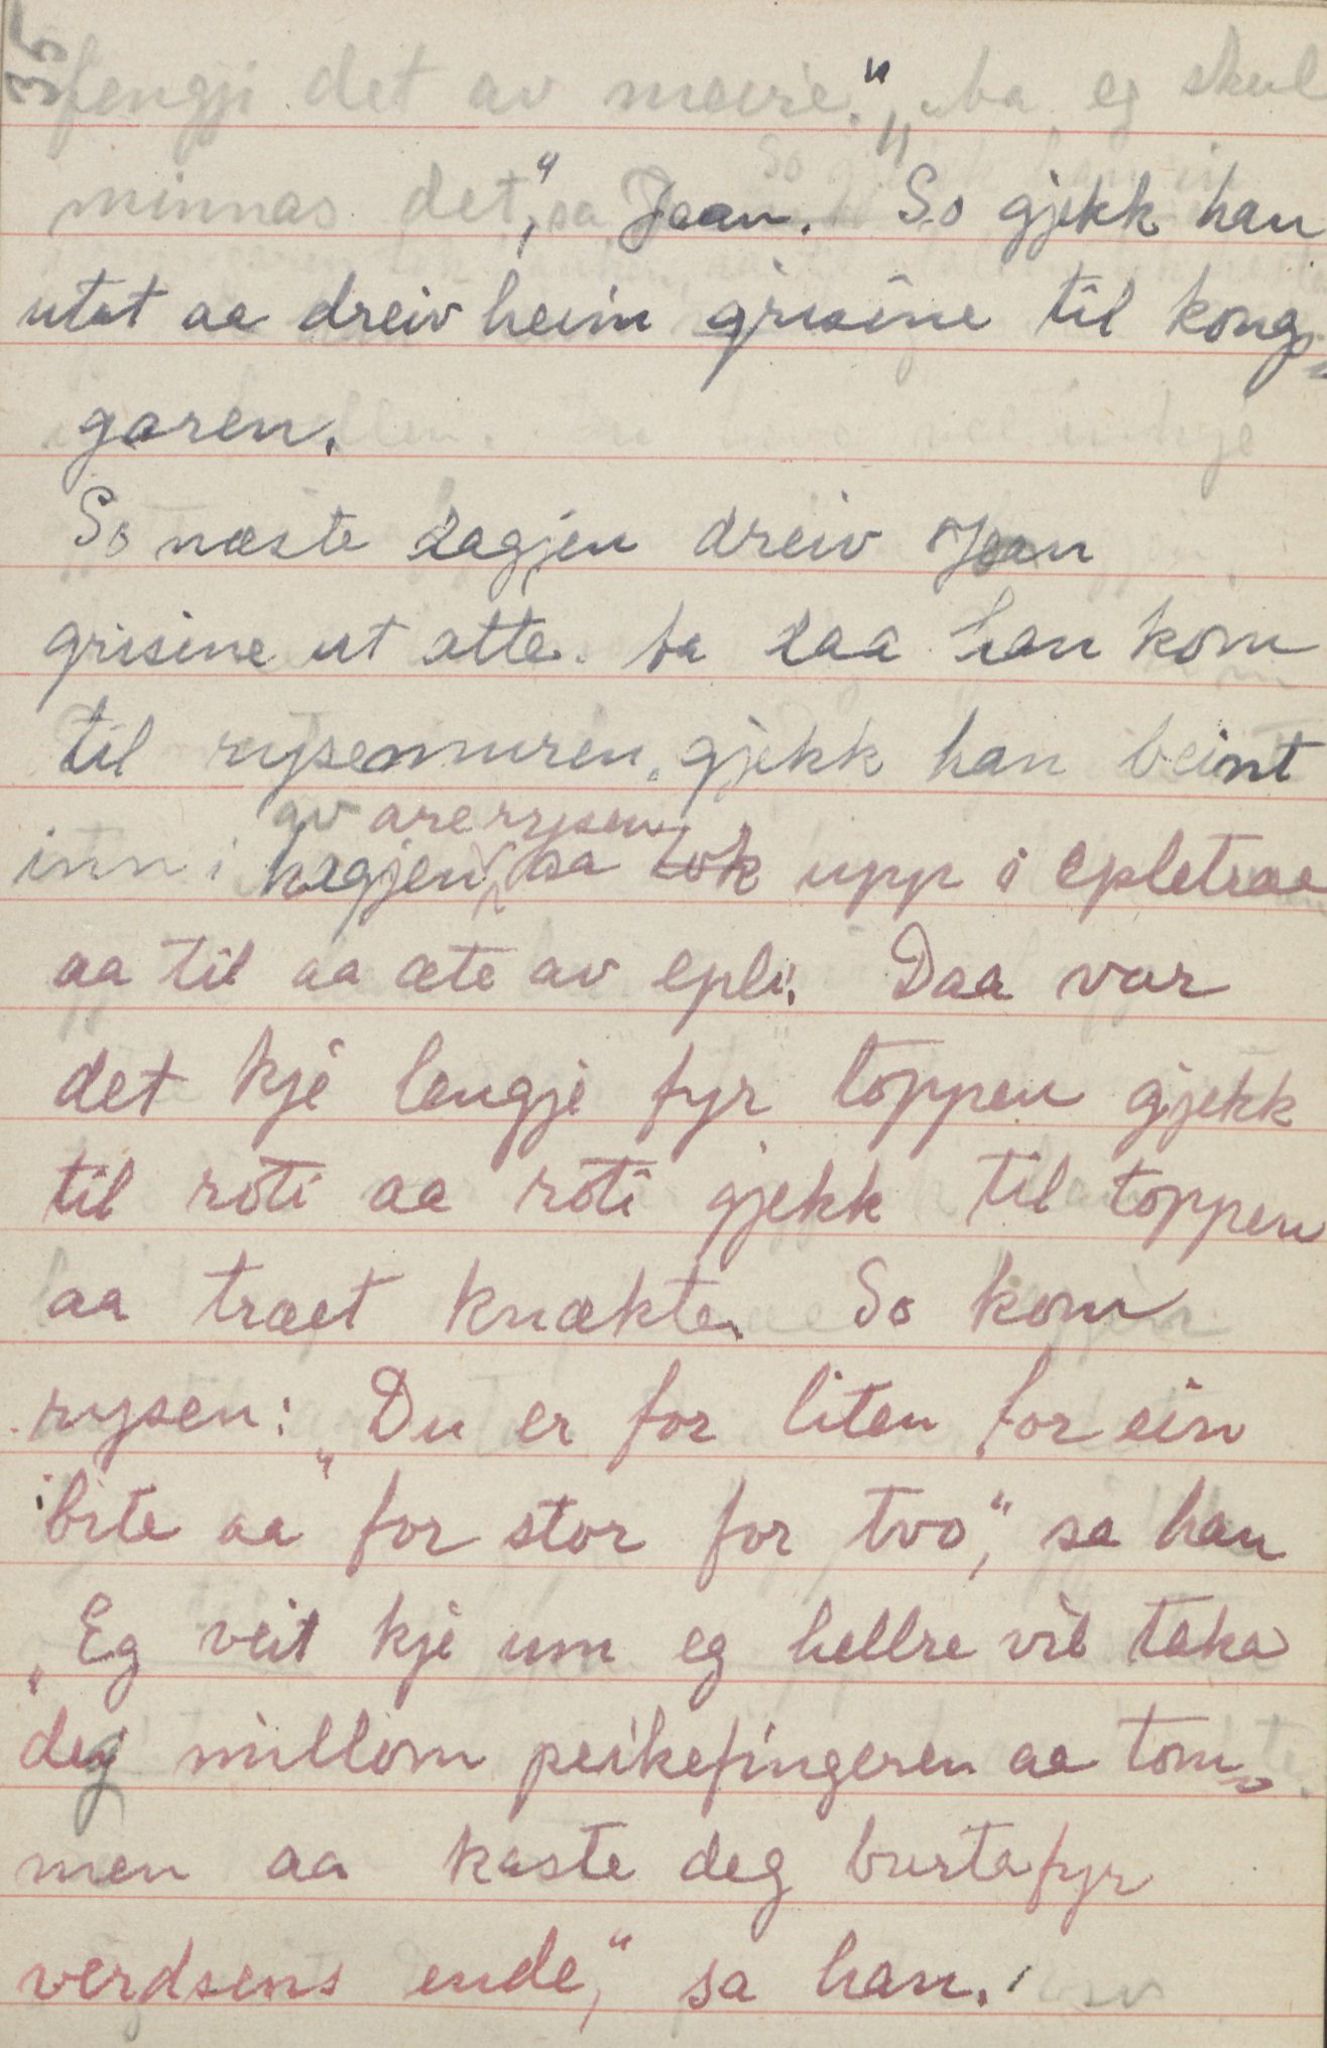 35
fengji det av meire." „ba eg skul
minnas det," sa Jean. So gjekk han
utat aa dreiv heim grisine til kongs-
garen.
So næste dagjen dreiv Jean
grisine ut atte. ba daa han kom
til rysemuren, gjekk han beint
av are rysen
inn i hagjen, aa tok upp i epletræ
aa til aa æte av epli. Daa var
det kje lengje fyr toppen gjekk
til roti aa roti gjekk til toppen
aa træet knækte. So kom
rysen: „Du er for liten for ein
bite aa for stor for two," sa han
„Eg veit kje um eg hellre vil taka
deg millom peikefingeren aa tom-
men aa kaste deg burtafyr
verdsens ende," sa han.